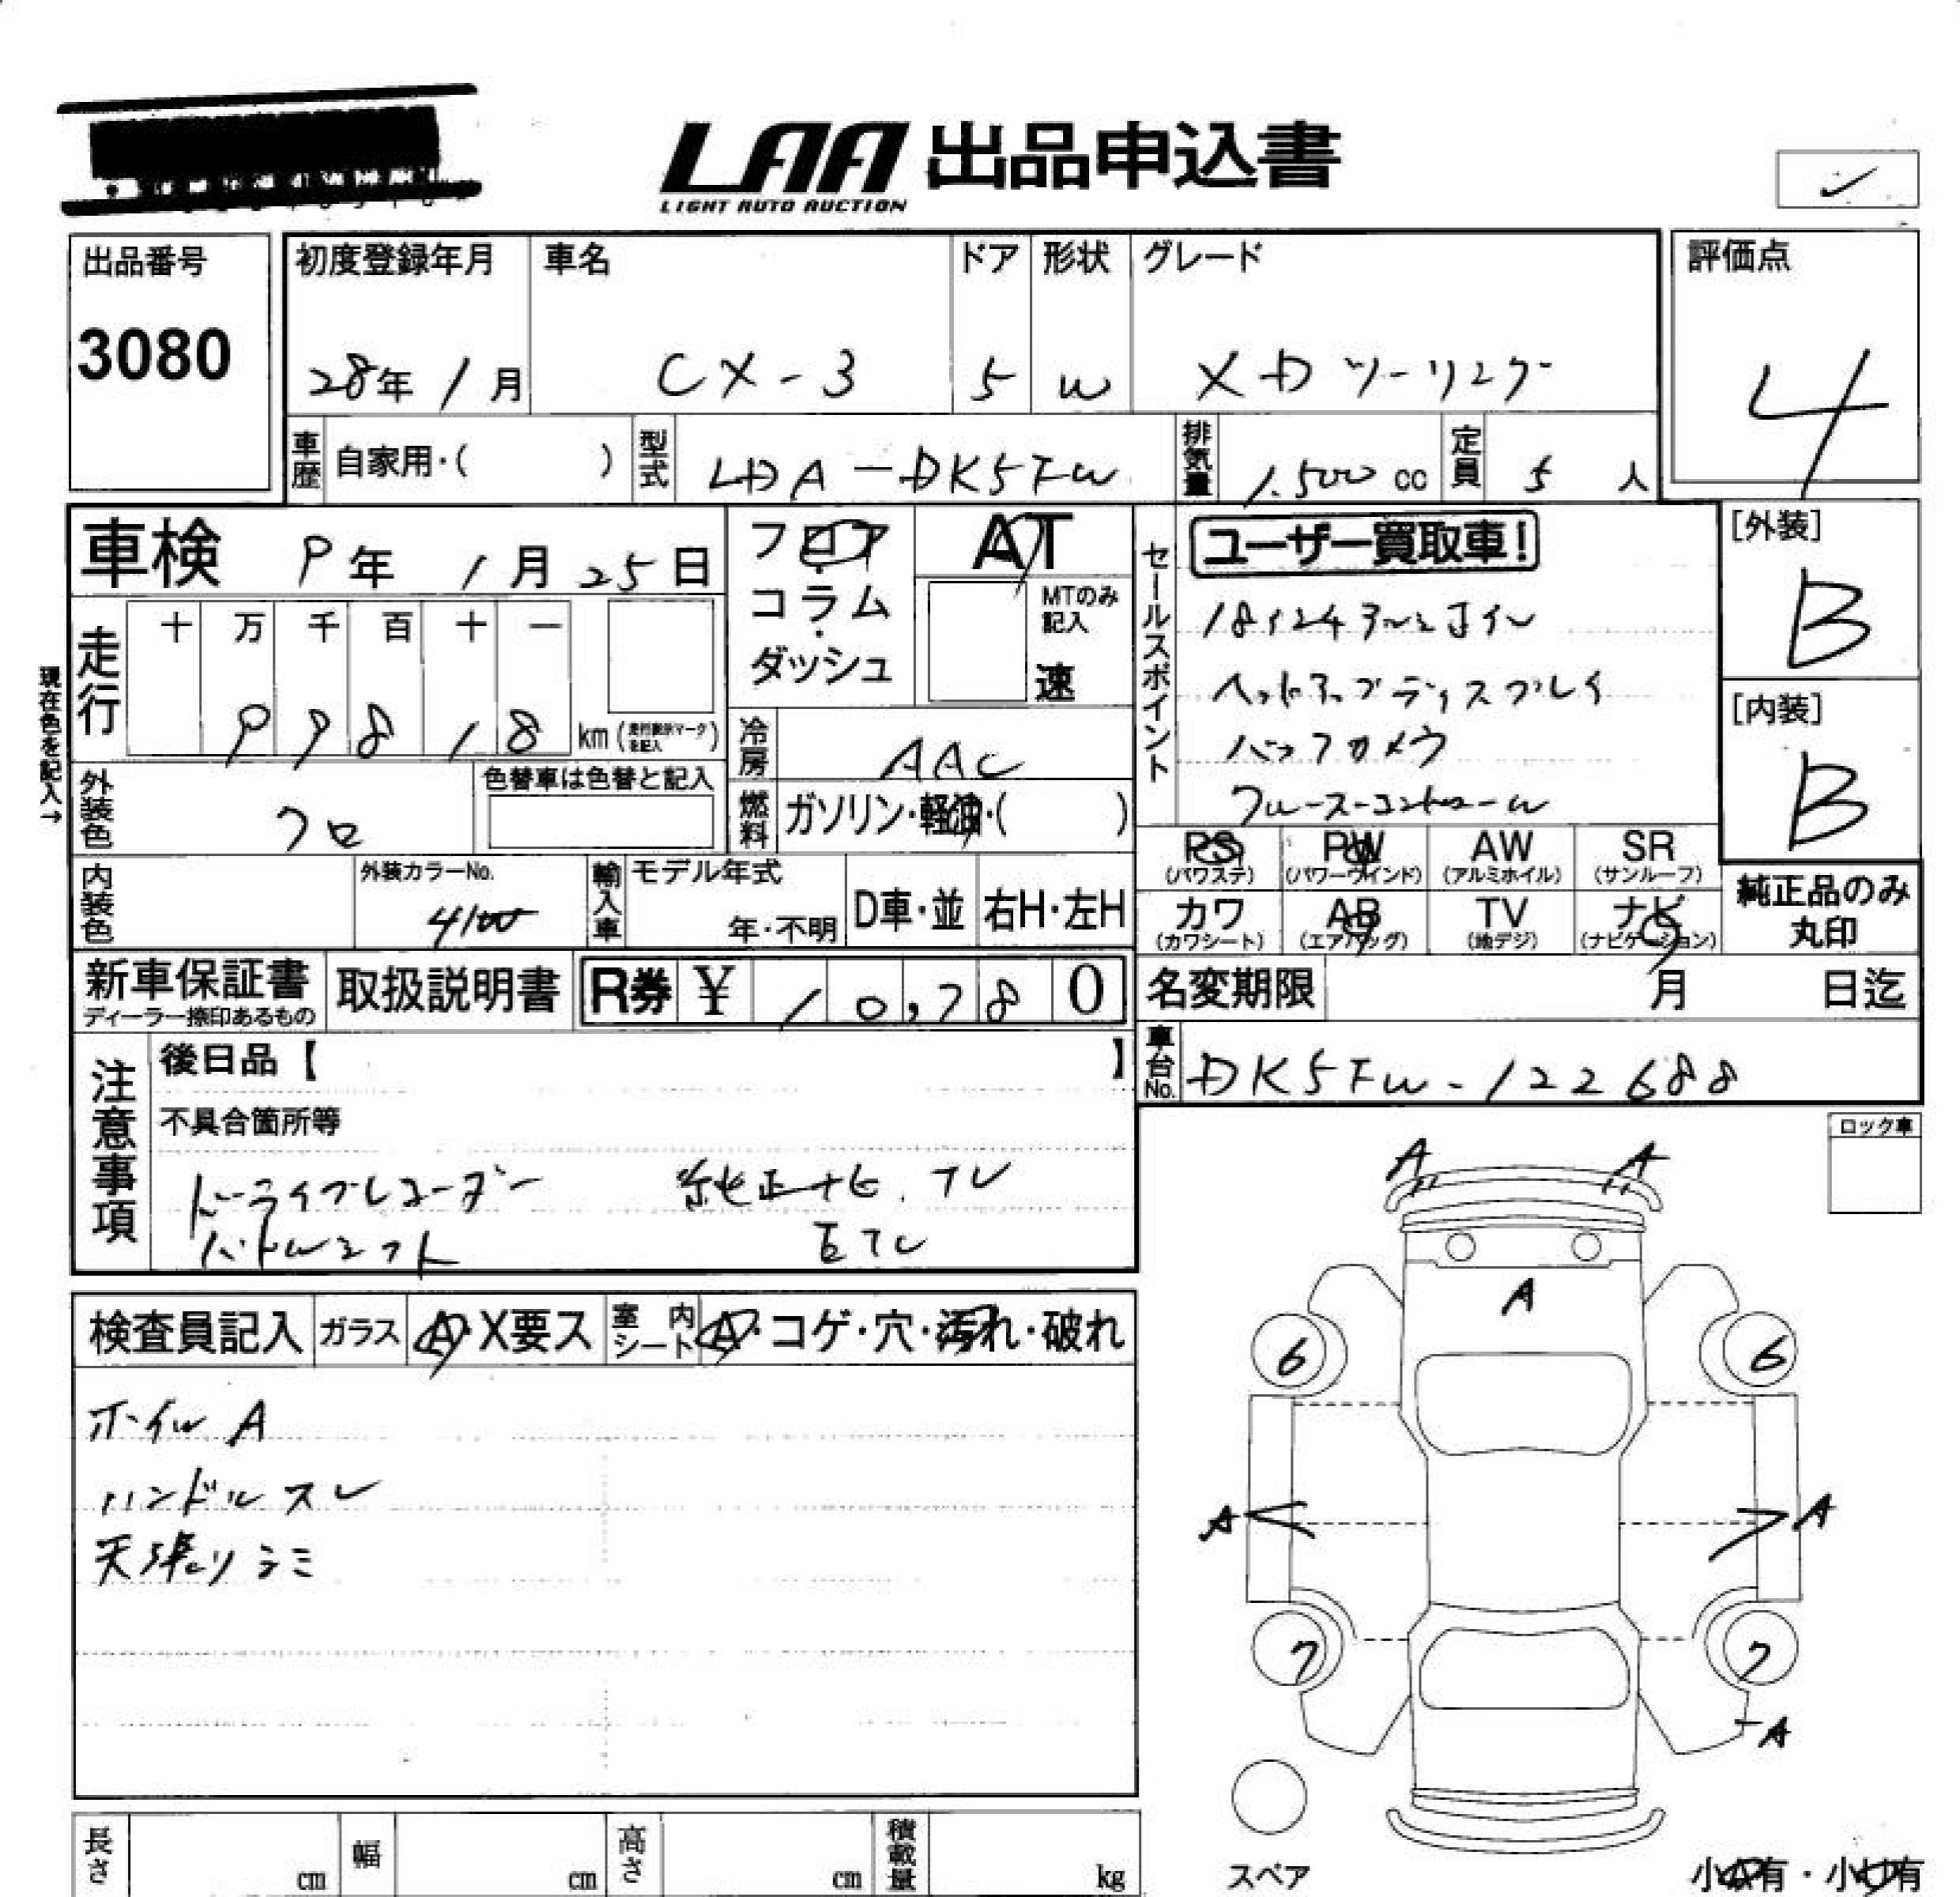 LAA 出品申込書
LIGHT AUTO AUCTION
✓
出品番号
3080
初度登録年月
28年 1月
車名
CX-3
ドア
5
形状
W
グレード
XD ツーリング
評価点
4
車歴 自家用・( )
型式 LDA-DK5FW
排気量 1.500 cc
定員 5 人
車検 9年 1月 25日
フロア・コラム・ダッシュ
AT
MTのみ記入
速
セールスポイント
ユーザー買取車!
18インチアルミホイル
ヘッドアップディスプレイ
バックカメラ
クルーズコントロール
[外装]
B
[内装]
B
現在色を記入→
走行
十 万 千 百 十 一
9 9 8 1 8 km (走行表示マークを記入)
冷房 AAC
外装色 クロ
色替車は色替と記入
燃料 ガソリン・軽油・( )
PS (パワステ)
PW (パワーウインド)
AW (アルミホイル)
SR (サンルーフ)
カワ (カワシート)
AB (エアバッグ)
TV (地デジ)
ナビ (ナビゲーション)
純正品のみ丸印
内装色
外装カラーNo.
4100
輸入車 モデル年式
年・不明
D車・並
右H・左H
新車保証書
ディーラー捺印あるもの
取扱説明書
R券 ¥ 10,780
名変期限 月 日迄
車台No. DK5FW-122688
注意事項
後日品【 】
不具合箇所等
ドライブレコーダー 純正ナビ.TV
パドルシフト ETC
ロック車
検査員記入
ガラス A・X要ス
室内シート A・コゲ・穴・汚れ・破れ
ホイル A
ハンドルスレ
天張りシミ
A A
A
6 6
A A
7 7
A
スペア
長さ cm
幅 cm
高さ cm
積載量 kg
小A有・小U有